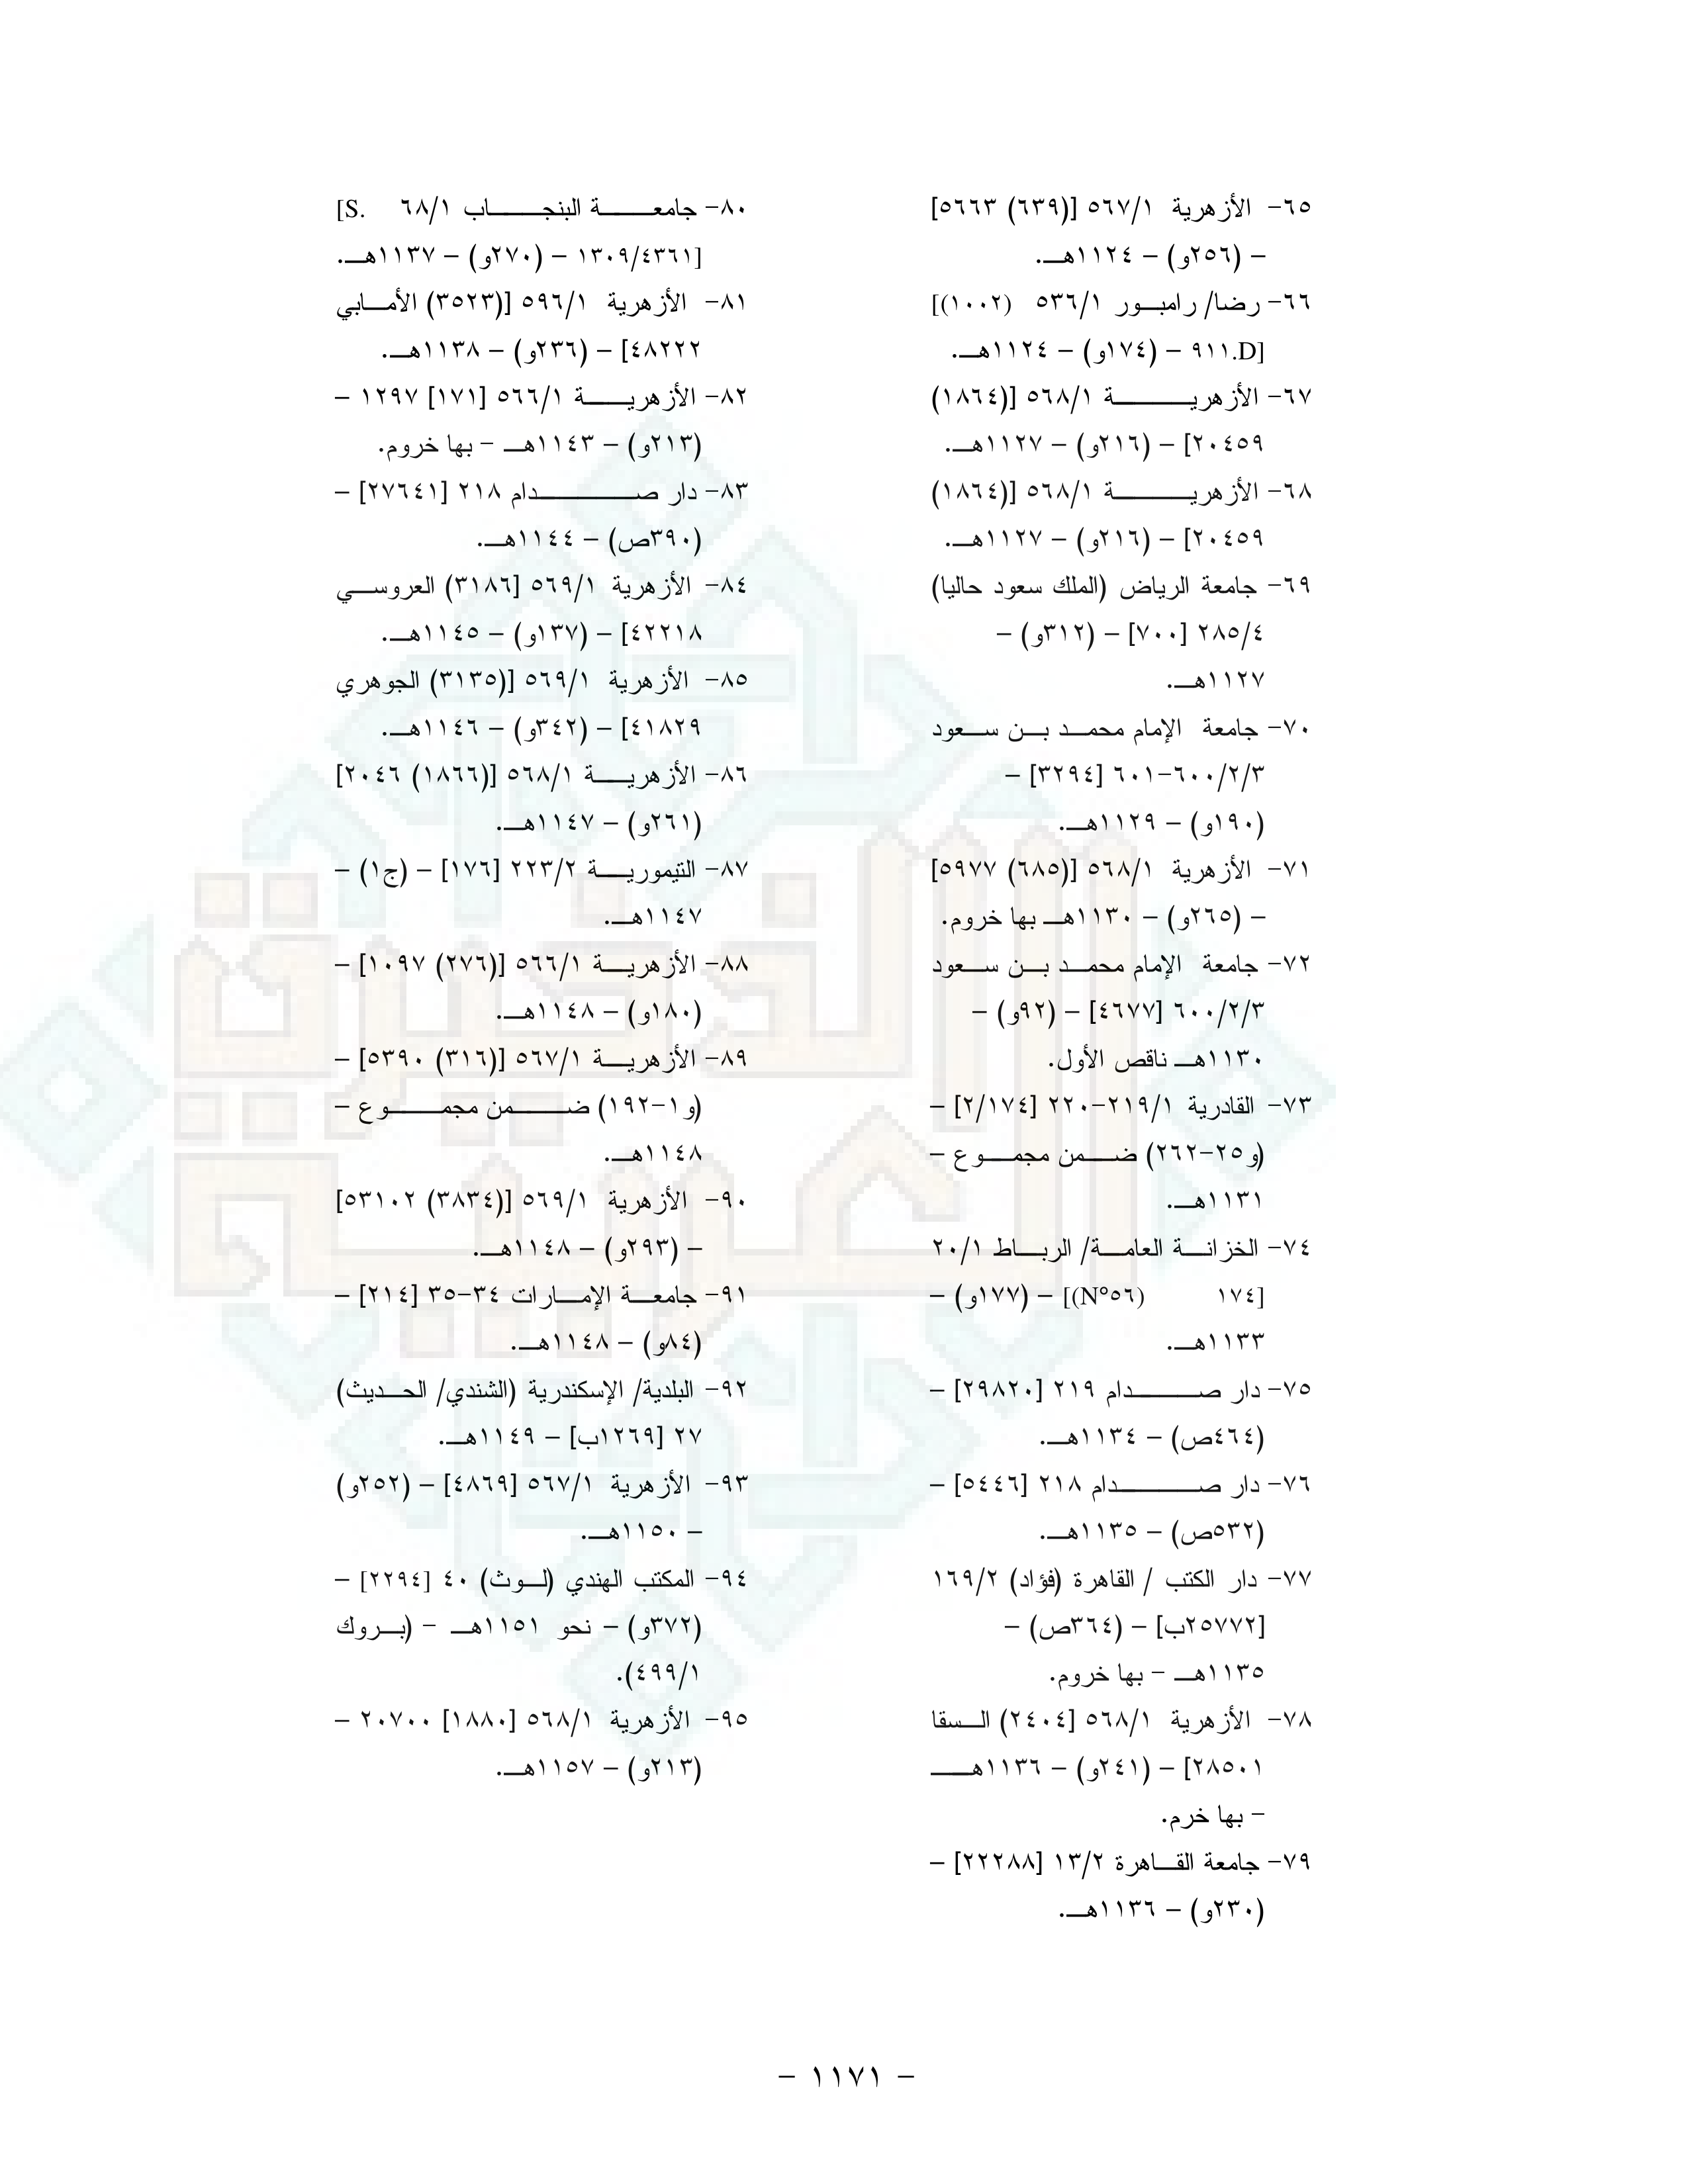 ٦٥- الأزهرية ٥٦٧/١ [(٦٣٩) ٥٦٦٣]
– (٢٥٦و) – ١١٢٤هـ.
٦٦- رضا/ رامبور ٥٣٦/١ [(١٠٠٢)
٩١١.D] – (١٧٤و) – ١١٢٤هـ.
٦٧- الأزهرية ٥٦٨/١ [(١٨٦٤)
٢٠٤٥٩] – (٢١٦و) – ١١٢٧هـ.
٦٨- الأزهرية ٥٦٨/١ [(١٨٦٤)
٢٠٤٥٩] – (٢١٦و) – ١١٢٧هـ.
٦٩- جامعة الرياض (الملك سعود حاليا)
٢٨٥/٤ [٧٠٠] – (٣١٢و) –
١١٢٧هـ.
٧٠- جامعة الإمام محمد بن سعود
٦٠٠/٢/٣-٦٠١ [٣٢٩٤] –
(١٩٠و) – ١١٢٩هـ.
٧١- الأزهرية ٥٦٨/١ [(٦٨٥) ٥٩٧٧]
– (٢٦٥و) – ١١٣٠هـ بها خروم.
٧٢- جامعة الإمام محمد بن سعود
٦٠٠/٢/٣ [٤٦٧٧] – (٩٢و) –
١١٣٠هـ ناقص الأول.
٧٣- القادرية ٢١٩/١-٢٢٠ [٢/١٧٤] –
(و٢٥-٢٦٢) ضمن مجموع –
١١٣١هـ.
٧٤- الخزانة العامة/ الرباط ٢٠/١
[١٧٤ (N°٥٦)] – (١٧٧و) –
١١٣٣هـ.
٧٥- دار صدام ٢١٩ [٢٩٨٢٠] –
(٤٦٤ص) – ١١٣٤هـ.
٧٦- دار صدام ٢١٨ [٥٤٤٦] –
(٥٣٢ص) – ١١٣٥هـ.
٧٧- دار الكتب / القاهرة (فؤاد) ١٦٩/٢
[٢٥٧٧٢ب] – (٣٦٤ص) –
١١٣٥هـ – بها خروم.
٧٨- الأزهرية ٥٦٨/١ [٢٤٠٤) السقا
٢٨٥٠١] – (٢٤١و) – ١١٣٦هـ
– بها خرم.
٧٩- جامعة القاهرة ١٣/٢ [٢٢٢٨٨] –
(٢٣٠و) – ١١٣٦هـ.
٨٠- جامعة البنجاب ٦٨/١ [S.
١٣٠٩/٤٣٦١] – (٢٧٠و) – ١١٣٧هـ.
٨١- الأزهرية ٥٩٦/١ [(٣٥٢٣) الأمابي
٤٨٢٢٢] – (٢٣٦و) – ١١٣٨هـ.
٨٢- الأزهرية ٥٦٦/١ [١٧١] ١٢٩٧ –
(٢١٣و) – ١١٤٣هـ – بها خروم.
٨٣- دار صدام ٢١٨ [٢٧٦٤١] –
(٣٩٠ص) – ١١٤٤هـ.
٨٤- الأزهرية ٥٦٩/١ [٣١٨٦) العروسي
٤٢٢١٨] – (١٣٧و) – ١١٤٥هـ.
٨٥- الأزهرية ٥٦٩/١ [(٣١٣٥) الجوهري
٤١٨٢٩] – (٣٤٢و) – ١١٤٦هـ.
٨٦- الأزهرية ٥٦٨/١ [(١٨٦٦) ٢٠٤٦]
(٢٦١و) – ١١٤٧هـ.
٨٧- التيمورية ٢٢٣/٢ [١٧٦] – (ج١) –
١١٤٧هـ.
٨٨- الأزهرية ٥٦٦/١ [(٢٧٦) ١٠٩٧] –
(١٨٠و) – ١١٤٨هـ.
٨٩- الأزهرية ٥٦٧/١ [(٣١٦) ٥٣٩٠] –
(و١-١٩٢) ضمن مجموع –
١١٤٨هـ.
٩٠- الأزهرية ٥٦٩/١ [(٣٨٣٤) ٥٣١٠٢]
– (٢٩٣و) – ١١٤٨هـ.
٩١- جامعة الإمارات ٣٤-٣٥ [٢١٤] –
(٨٤و) – ١١٤٨هـ.
٩٢- البلدية/ الإسكندرية (الشندي/ الحديث)
٢٧ [١٢٦٩ب] – ١١٤٩هـ.
٩٣- الأزهرية ٥٦٧/١ [٤٨٦٩] – (٢٥٢و)
– ١١٥٠هـ.
٩٤- المكتب الهندي (لوث) ٤٠ [٢٢٩٤] –
(٣٧٢و) – نحو ١١٥١هـ – (بروك
٤٩٩/١).
٩٥- الأزهرية ٥٦٨/١ [١٨٨٠] ٢٠٧٠٠ –
(٢١٣و) – ١١٥٧هـ.
الذخيرة
العربية
– ١١٧١ –